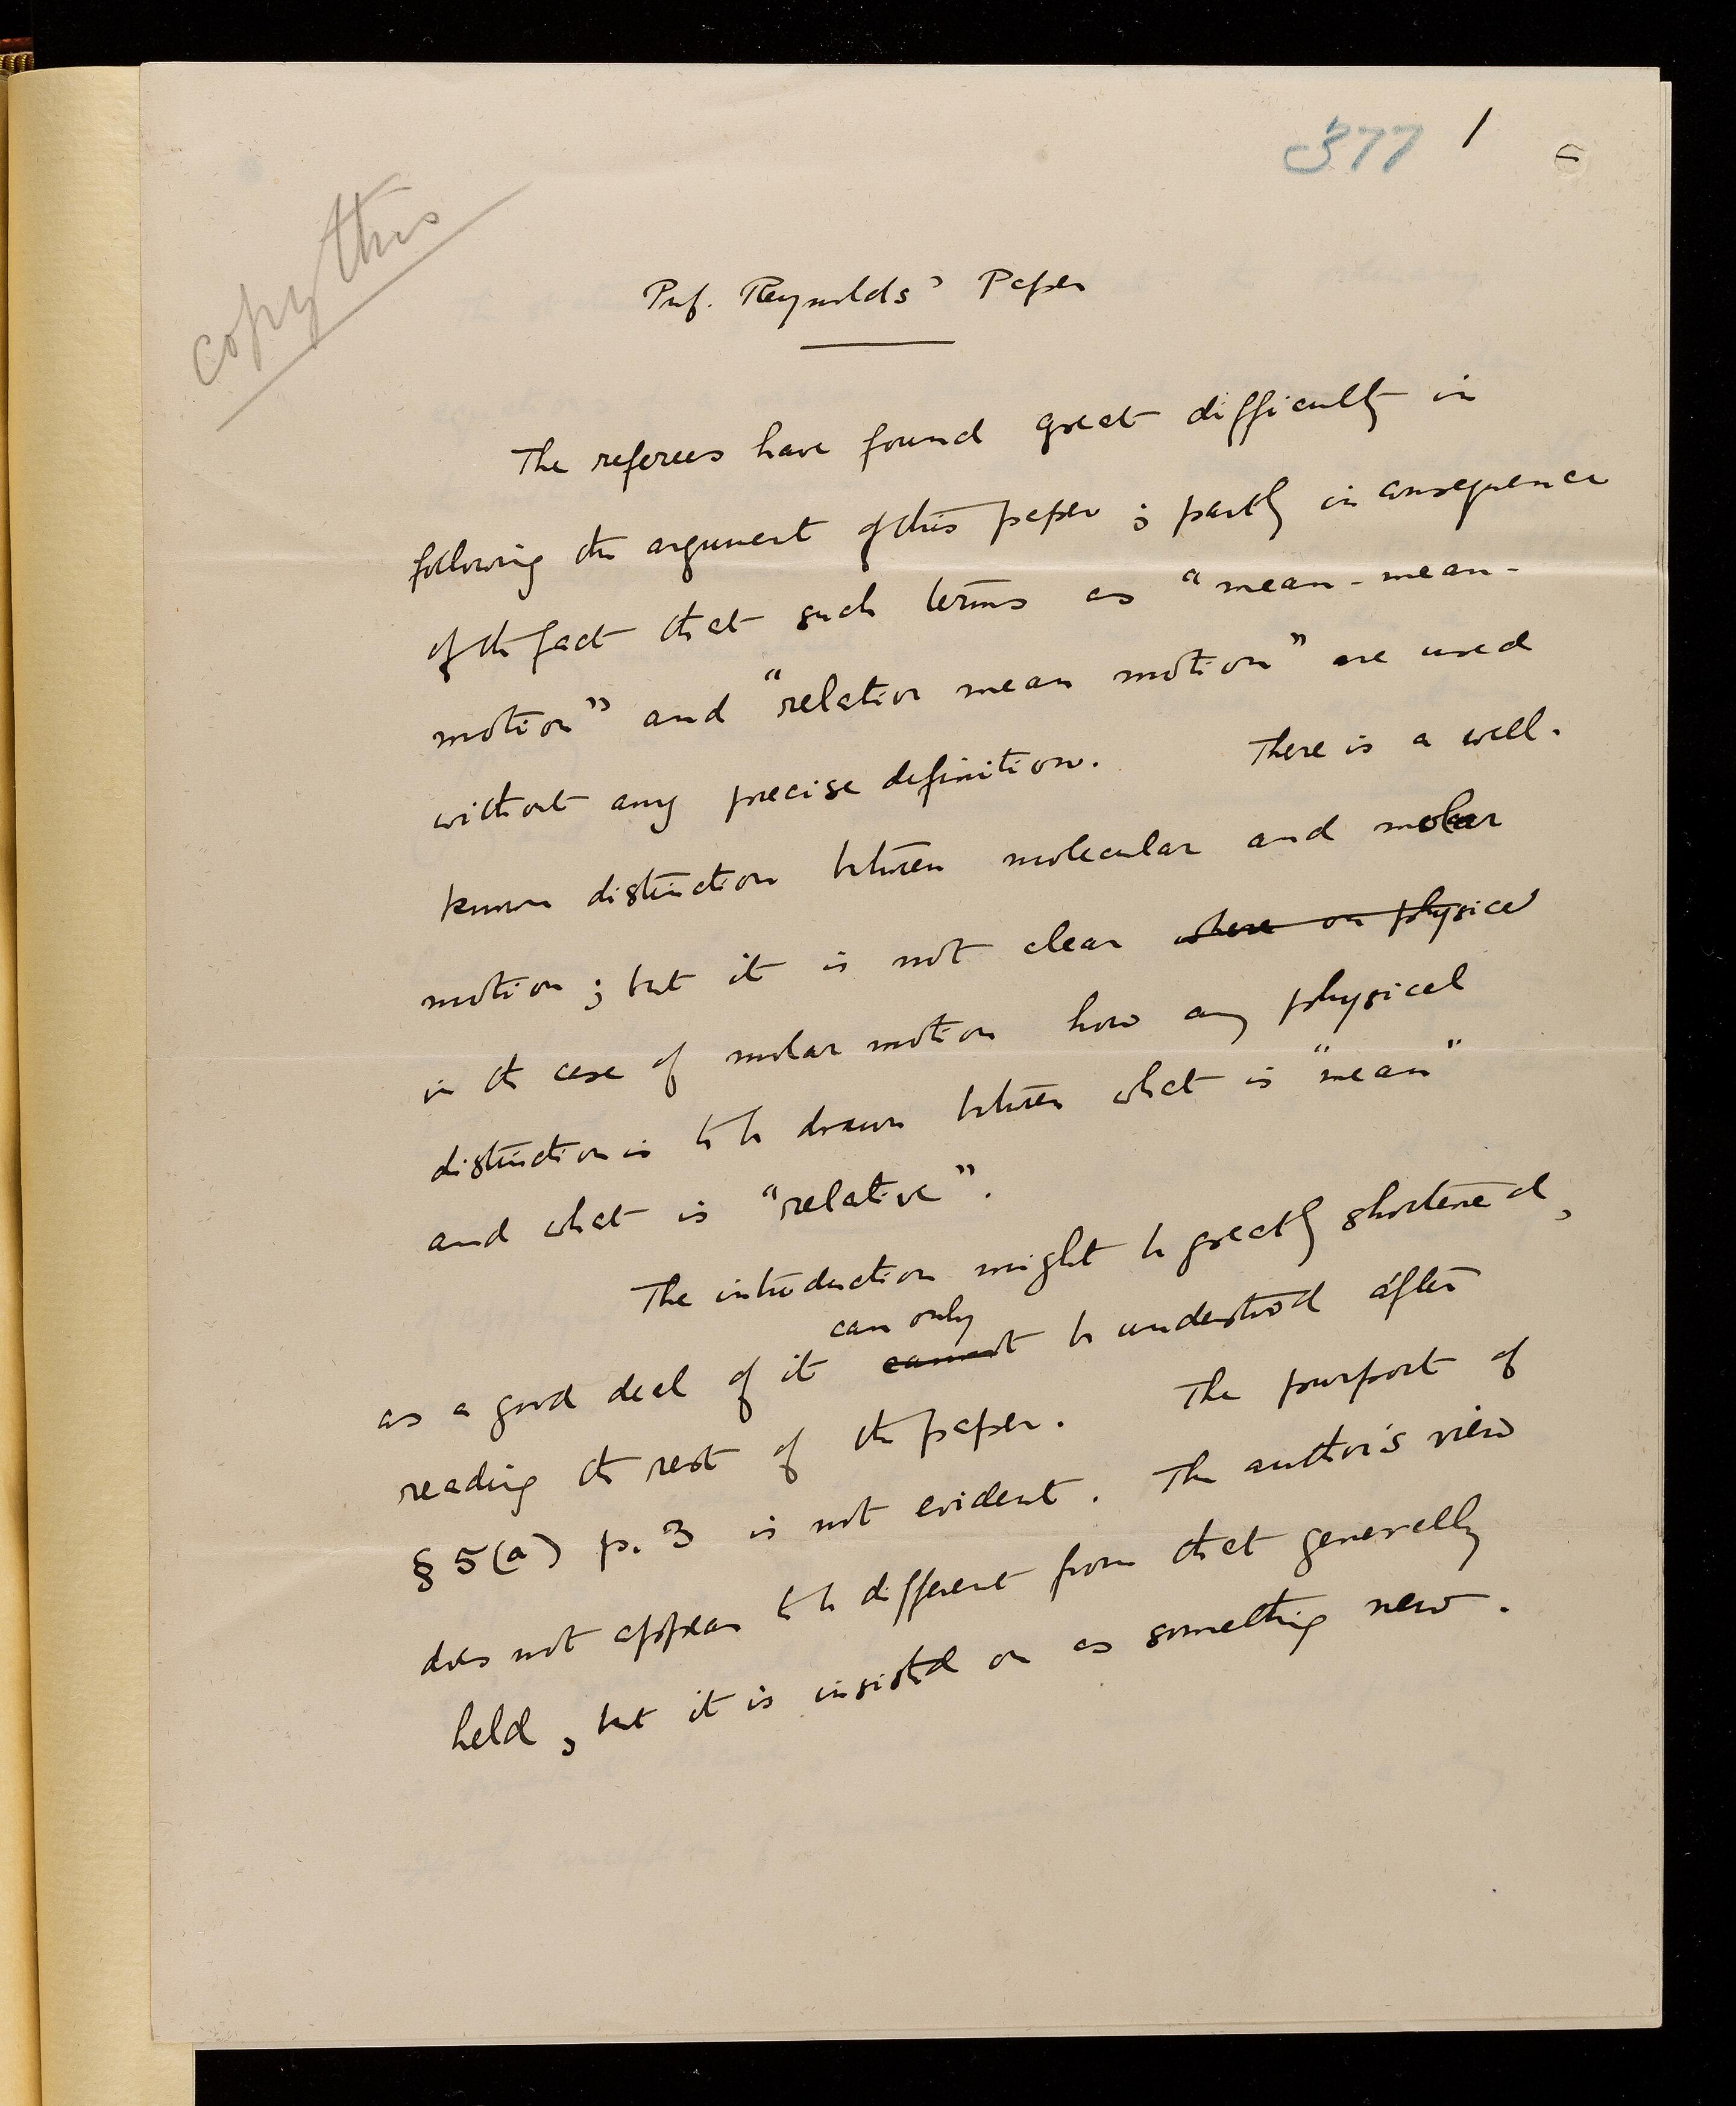 377 1
copy this
Prof. Reynolds' Paper
The referees have found great difficulty in
following the argument of this paper ; partly in consequence
of the fact that such terms as "mean-mean-
motion" and "relative mean motion" are used
without any precise definition. There is a well-
known distinction between molecular and molar
motion ; but it is not clear where on physical
in the case of molar motion how any physical
distinction is to be drawn between what is "mean"
and what is "relative".
The introduction might be greatly shortened,
can only
as a good deal of it cannot be understood after
reading the rest of the paper. The purport of
§ 5(a) p. 3 is not evident. The author's view
does not appear to be different from that generally
held, but it is insisted on as something new.